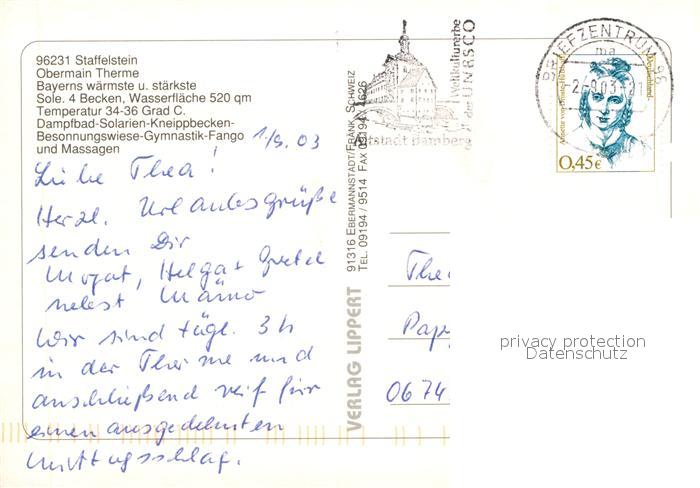 96231 Staffelstein
Obermain Therme
Bayerns wärmste u. stärkste
Sole. 4 Becken, Wasserfläche 520 qm
Temperatur 34-36 Grad C.
Dampfbad-Solarien-Kneippbecken-
Besonnungswiese-Gymnastik-Fango
und Massagen
1/9. 03
Liebe Thea!
Herzl. Urlaubsgrüße
senden Dir
Helga + Gretel
nebst
Wir sind tägl. 3 h
in der Therme und
anschließend reif für
einen ausgedehnten
Mittagsschlag.
VERLAG LIPPERT
91316 EBERMANNSTADT/FRÄNK. SCHWEIZ
TEL. 09194 / 9514 FAX 09194 / 4626
Altstadt Bamberg
Weltkulturerbe
der UNESCO
BRIEFZENTRUM 96
ma
-2.-9.03-21
Annette von Droste-Hülshoff
Deutschland
0,45€
Thea
Pap
0674
privacy protection
Datenschutz